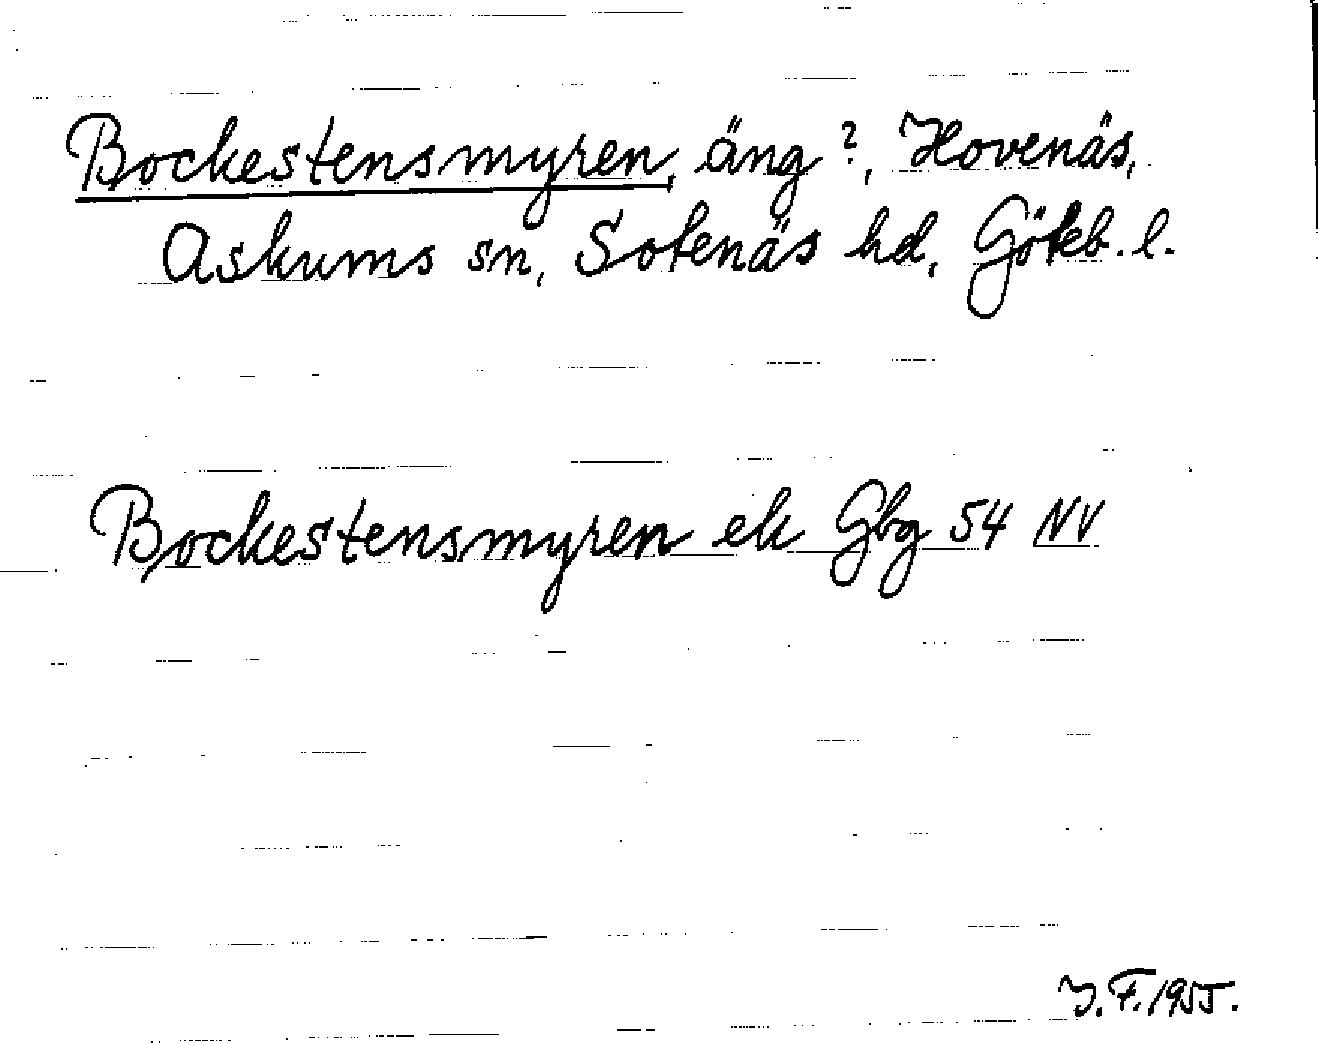 Bockestensmyren, äng?, Hovenäs,
Askums sn, Sotenäs hd, Göteb. l.
Bockestensmyren ek Gbg 54 NV
J.F. 1955.